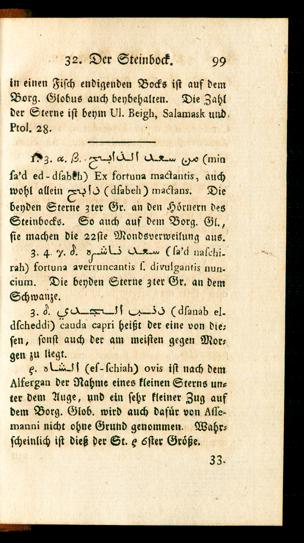 32. Der Steinbock. 99
in einen Fisch endigenden Bocks ist auf dem
Borg. Globus auch beybehalten. Die Zahl
der Sterne ist beym Ul. Beigh, Salamask und
Ptol. 28.
1. 3. α. β. من سعد الذابح (min
sa'd ed-dsabeh) Ex fortuna mactantis, auch
wohl allein ذابح (dsabeh) mactans. Die
beyden Sterne 3ter Gr. an den Hörnern des
Steinbocks. So auch auf dem Borg. Gl.,
sie machen die 22ste Mondsverweilung aus.
3. 4. γ. δ. سعد ناشره (sa'd naschi-
rah) fortuna averruncantis s. divulgantis nun-
cium. Die beyden Sterne 3ter Gr. an dem
Schwanze.
3. δ. ذنب الجدي (dsanab el-
dscheddi) cauda capri heißt der eine von die-
sen, sonst auch der am meisten gegen Mor-
gen zu liegt.
ϱ. الشاه (es-schiah) ovis ist nach dem
Alfergan der Nahme eines kleinen Sterns un-
ter dem Auge, und ein sehr kleiner Zug auf
dem Borg. Glob. wird auch dafür von Asse-
manni nicht ohne Grund genommen. Wahr-
scheinlich ist dieß der St. ϱ 6ster Größe.
33.